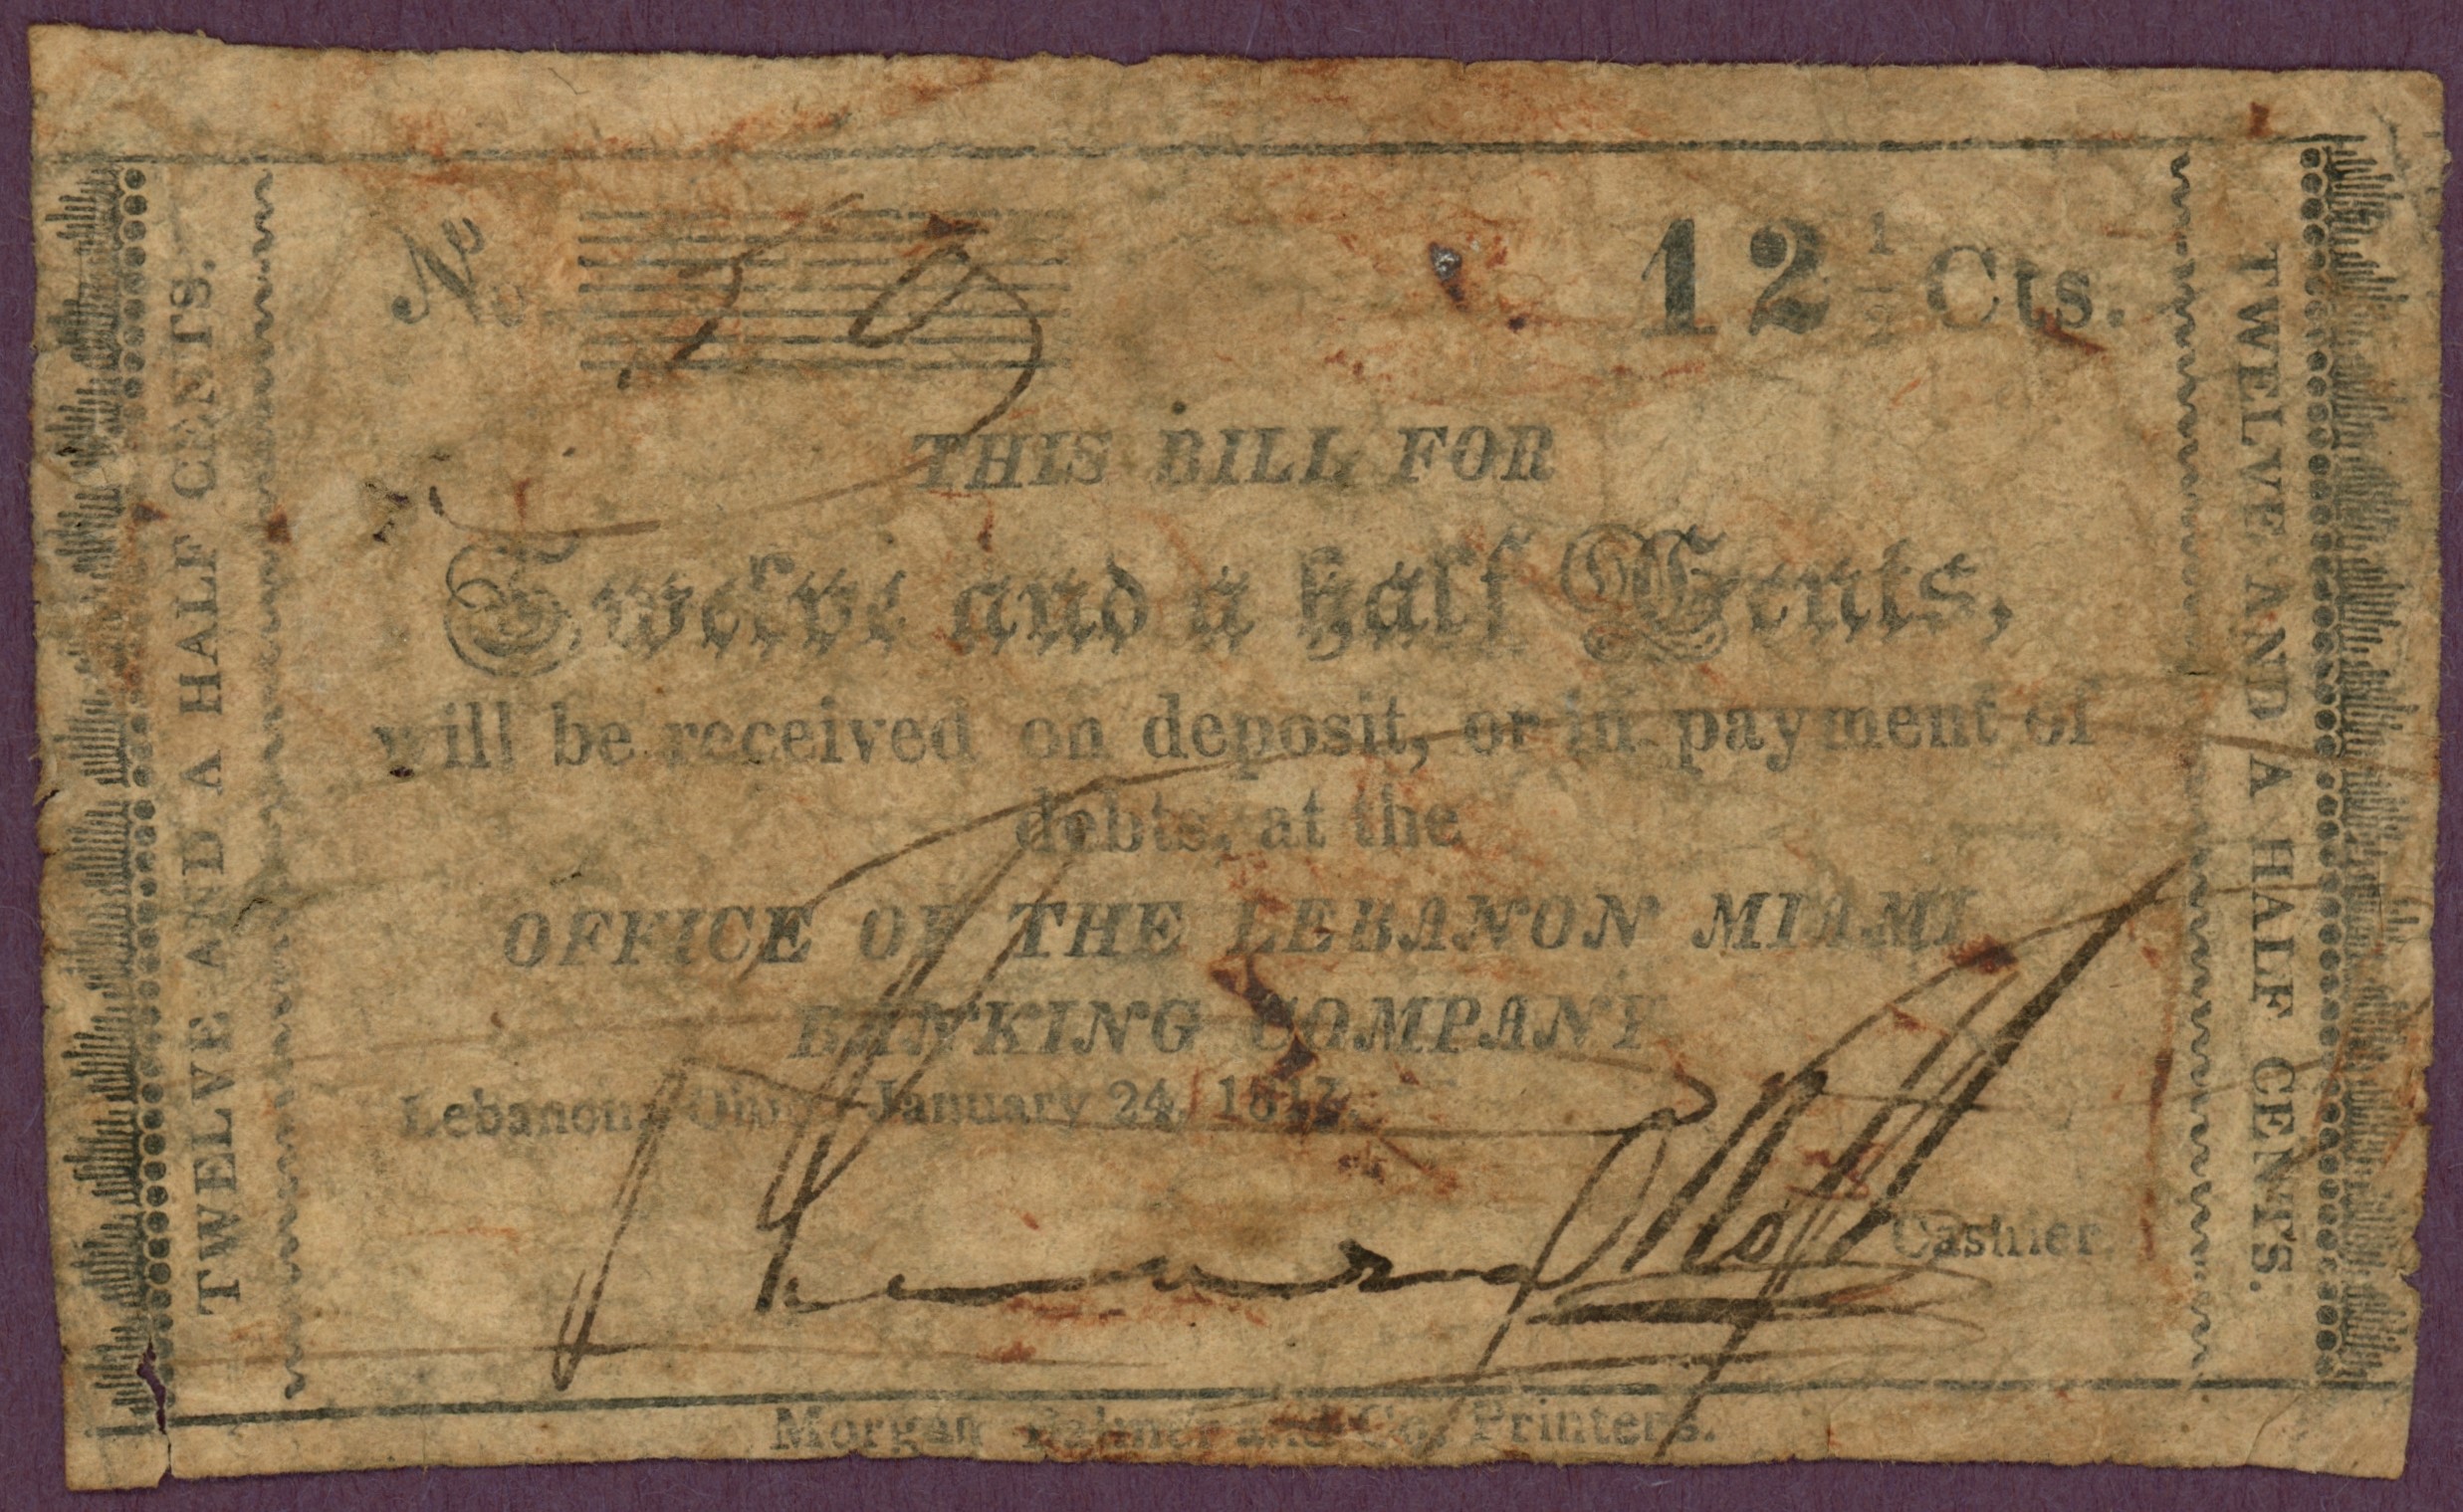 TWELVE AND A HALF CENTS.
No
12 1/2 Cts.
THIS BILL FOR
Twelve and a half Cents,
will be received on deposit, or in payment of
debts, at the
OFFICE OF THE LEBANON MIAMI
BANKING COMPANY
Lebanon, Ohio, January 24, 1817.
Cashier.
Morgan Palmer and Co. Printers.
TWELVE AND A HALF CENTS.